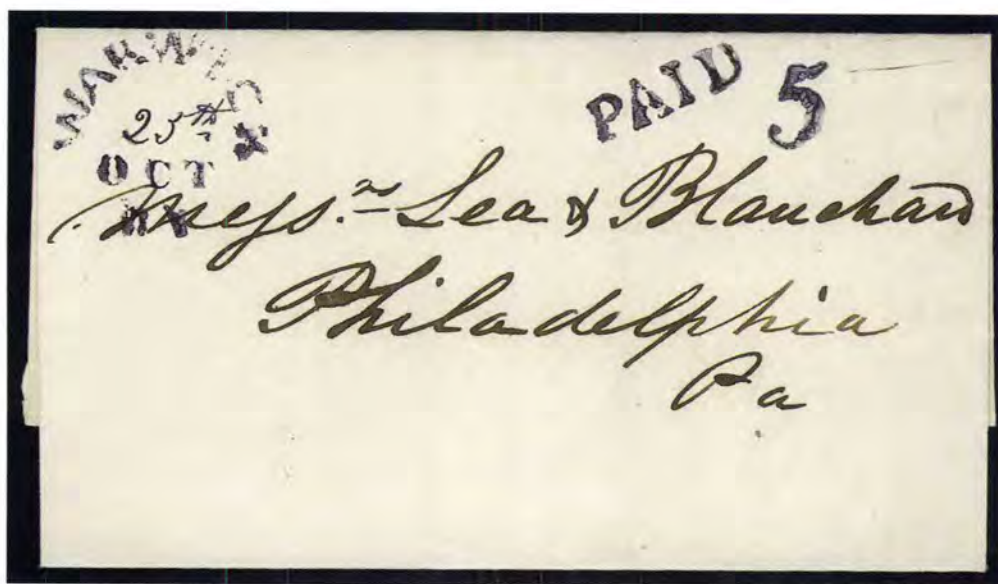 WARWICK
25th
OCT
PAID 5
Messrs. Lea & Blanchard
Philadelphia
Pa